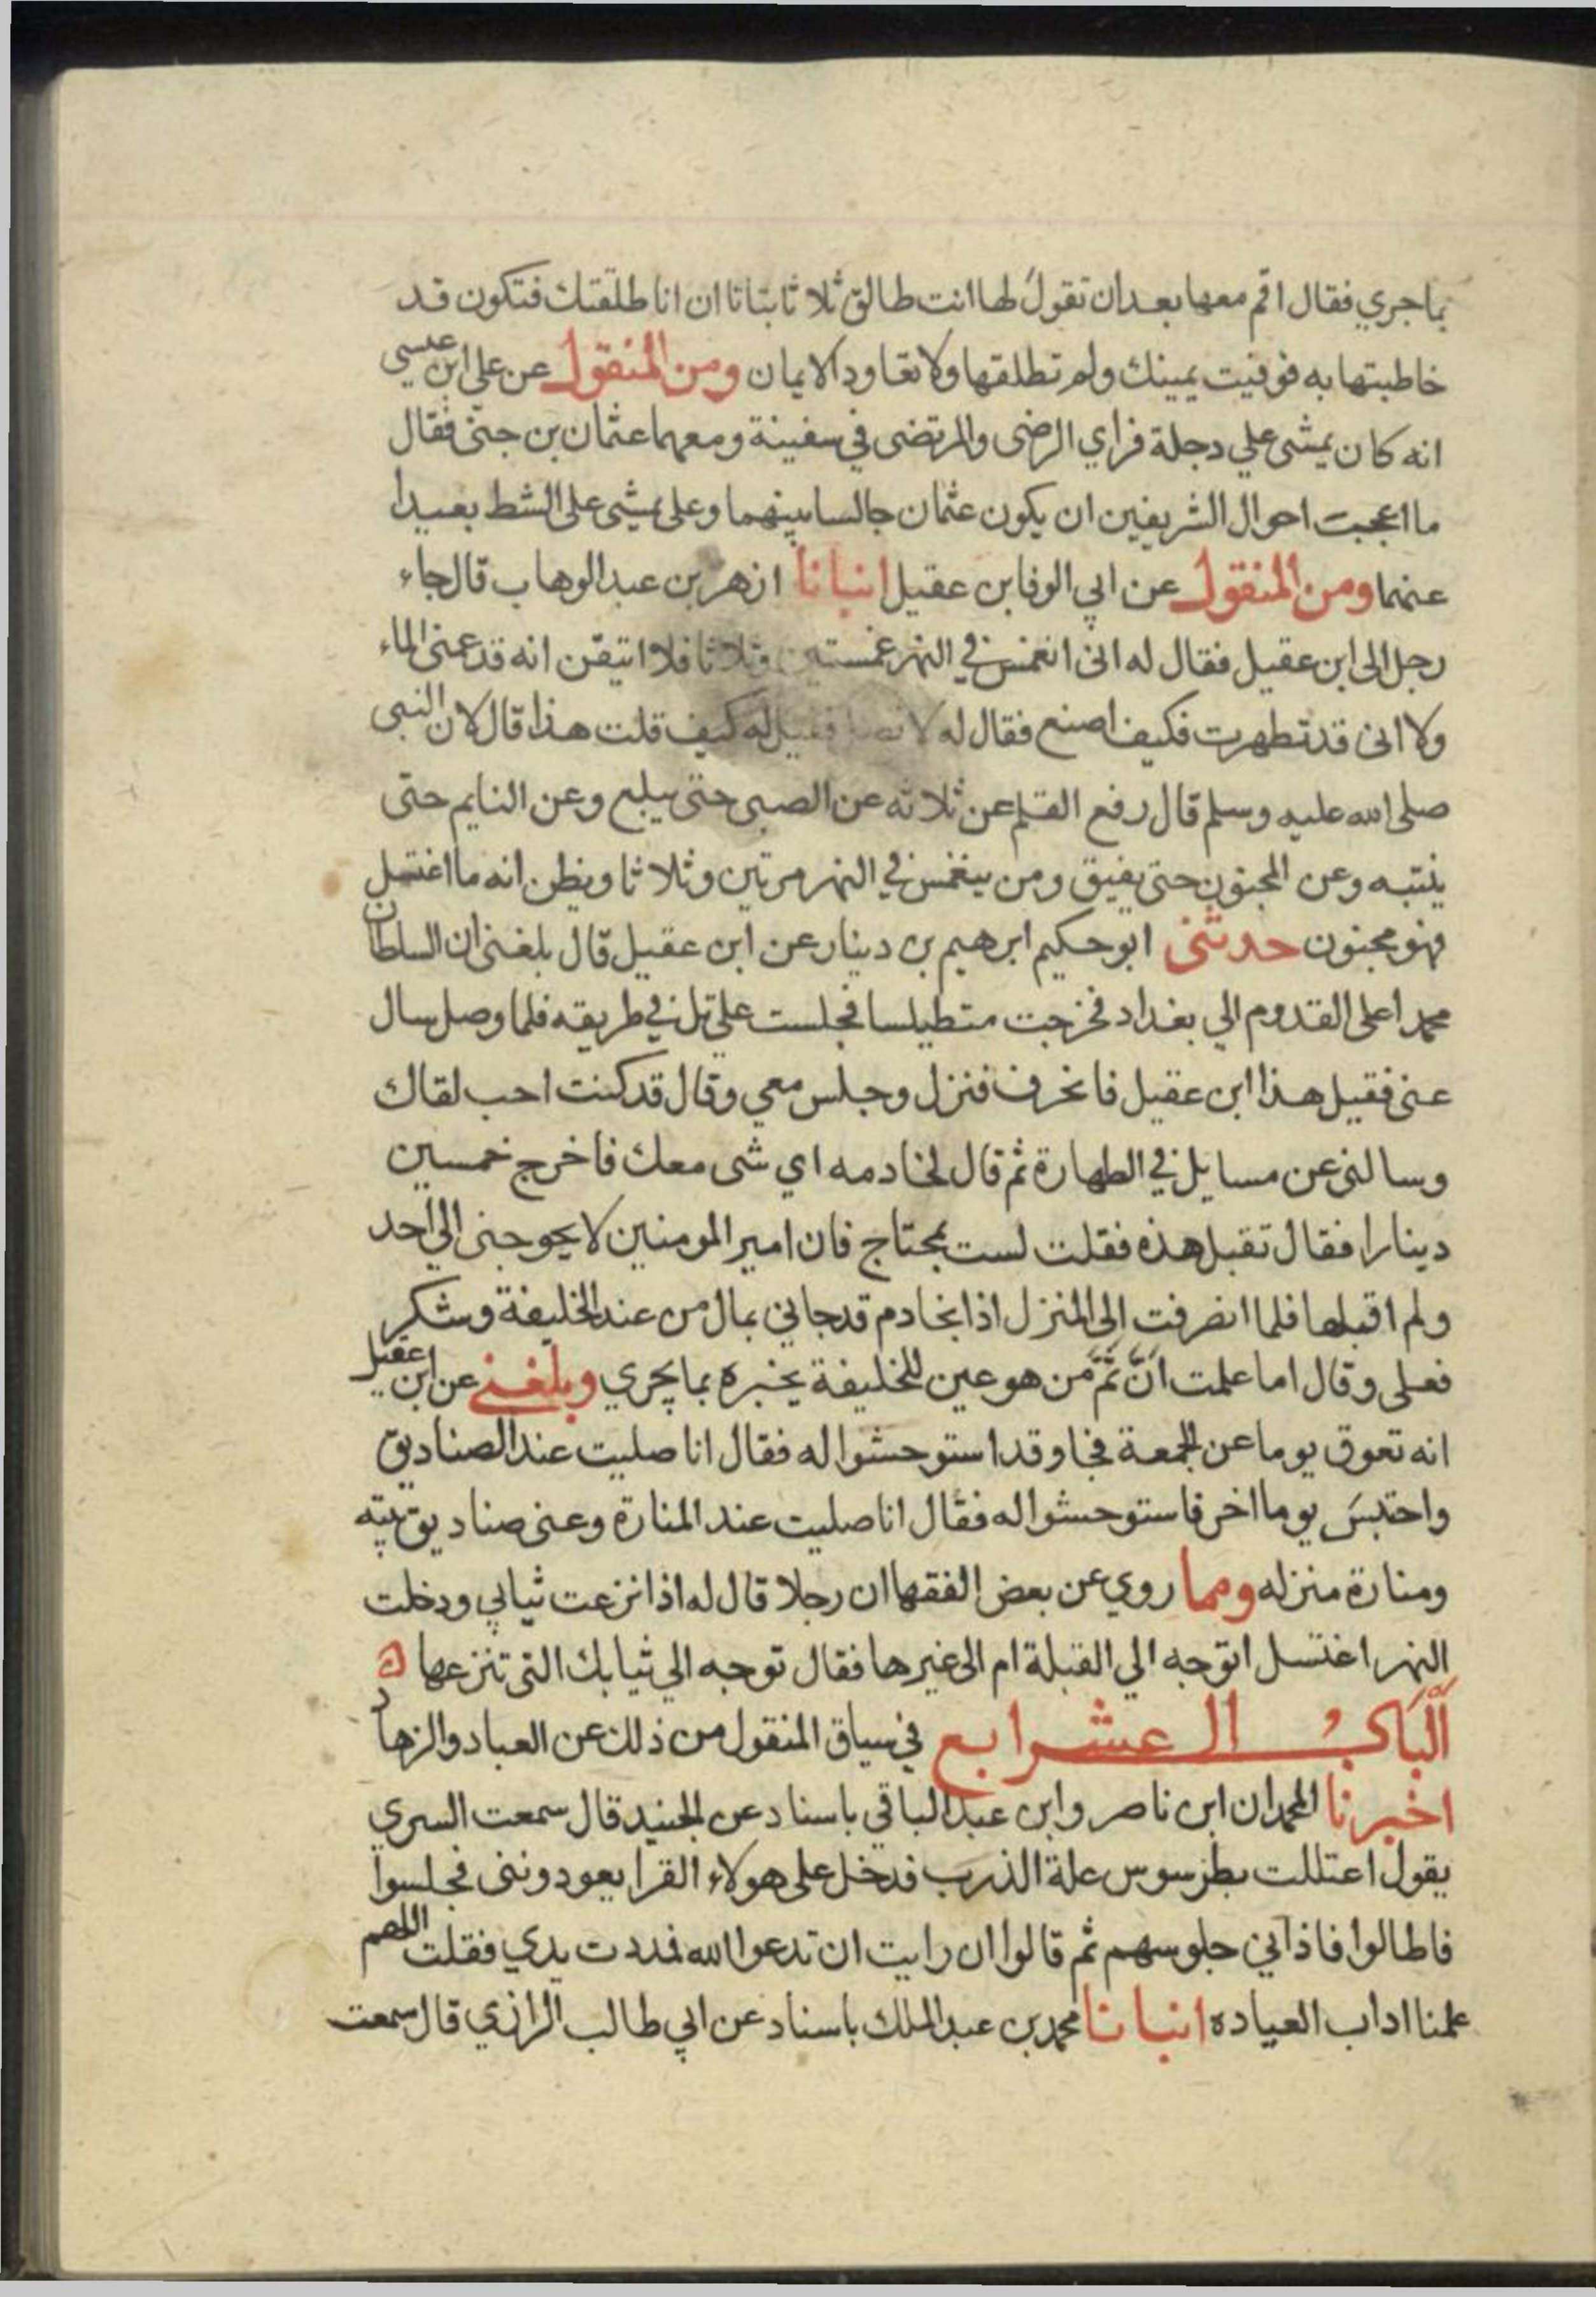 بما جري فقال اقم معها بعد ان تقول لها انت طالق ثلاثا بتاتا ان انا طلقتك فتكون قد
خاطبتها به فوفيت يمينك ولم تطلقها ولا تعاود الايمان ومن المنقول عن علي ابن عيسي
انه كان يمشي علي دجلة فراي الرضي والمرتضي في سفينة ومعهما عثمان بن جني فقال
ما اعجبت احوال الشريفين ان يكون عثمان جالسا بينهما وعلي يمشي علي الشط بعيدا
عنهما ومن المنقول عن ابي الوفا بن عقيل انبانا ازهر بن عبد الوهاب قال جاء
رجل الى ابن عقيل فقال له انى انغمس في النهر غمستين وثلاثا فلا اتيقن انه قد عمنى الماء
ولا انى قد تطهرت فكيف اصنع فقال له لا تصل فقيل له كيف قلت هذا قال لان النبى
صلى الله عليه وسلم قال رفع القلم عن ثلاثه عن الصبى حتى يبلغ وعن النايم حتى
ينتبه وعن المجنون حتى يفيق ومن ينغمس في النهر مرتين وثلاثا ويظن انه ما اغتسل
فهو مجنون حدثنى ابو حكيم ابرهيم بن دينار عن ابن عقيل قال بلغنى ان السلطان
محمدا على القدوم الي بغداد فخرجت متطيلسا فجلست علي تل في طريقه فلما وصل سال
عنى فقيل هذا ابن عقيل فانحرف فنزل وجلس معي وقال قد كنت احب لقاك
وسالنى عن مسايل في الطهارة ثم قال لخادمه اي شى معك فاخرج خمسين
دينارا فقال تقبل هذه فقلت لست بمحتاج فان امير المومنين لا يحوجنى الي احد
ولم اقبلها فلما انصرفت الى المنزل اذا بخادم قد جاني بمال من عند الخليفة وشكر
فعلى وقال اما علمت انّ ثَمَّ من هو عين للخليفة يخبره بما يجري وبلغني عن ابن عقيل
انه تعوق يوما عن الجمعة فجا وقد استوحشوا له فقال انا صليت عند الصناديق
واحتبسَ يوما اخر فاستوحشوا له فقال انا صليت عند المنارة وعنى صناديق بيته
ومنارة منزله ومما روي عن بعض الفقها ان رجلا قال له اذا نزعت ثيابي ودخلت
النهر اغتسل اتوجه الي القبلة ام الى غيرها فقال توجه الي ثيابك التى تنزعها ه
الباب الـ عشـرابع في سياق المنقول من ذلك عن العباد والزهاد
اخبرنا المحمدان ابن ناصر وابن عبد الباقي باسناد عن الجنيد قال سمعت السري
يقول اعتللت بطرسوس علة الذرب فدخل على هولاء القرا يعودوننى فجلسوا
فاطالوا فاذاني جلوسهم ثم قالوا ان رايت ان تدعوا الله فمددت يدي فقلت اللهم
علمنا اداب العياده انبانا محمد بن عبد الملك باسناد عن ابي طالب الرازي قال سمعت